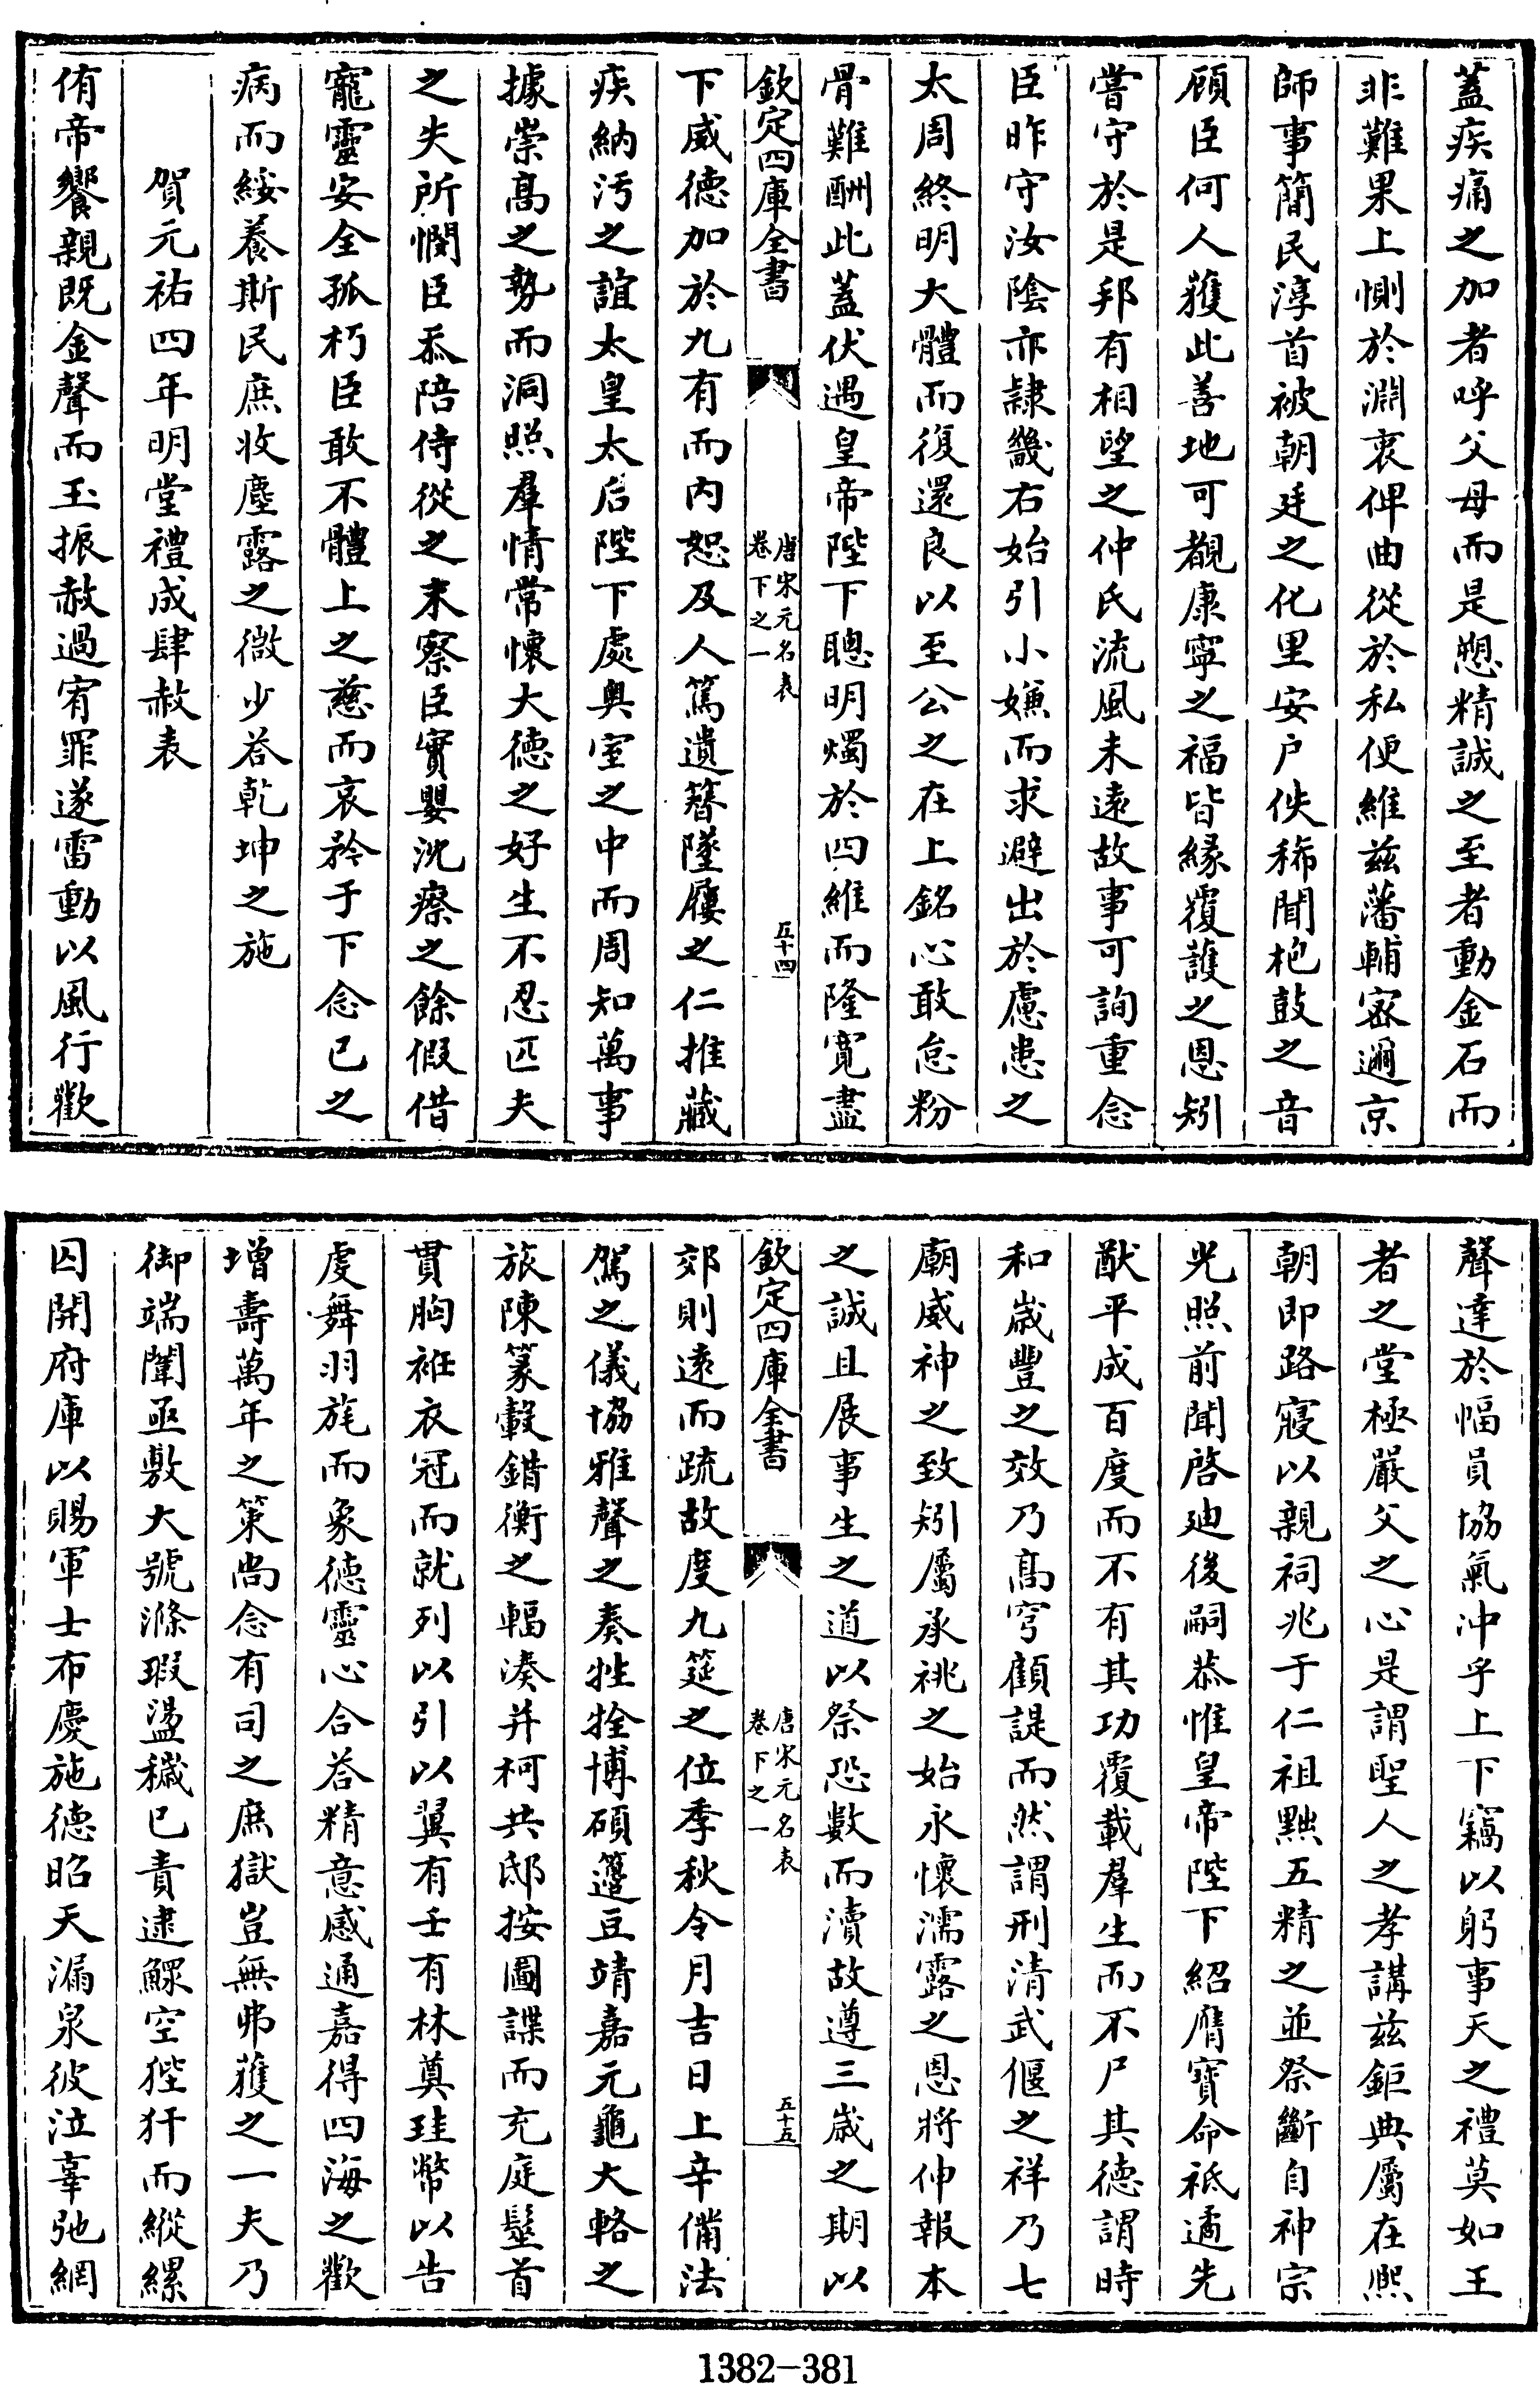 蓋疾痛之加者呼父母而是愬精誠之至者動金石而
非難果上惻於淵衷俾曲從於私便維兹藩輔宻邇京
師事簡民淳首被朝廷之化里安户佚稀聞枹鼓之音
顧臣何人獲此善地可覩康寧之福皆緣覆護之恩矧
嘗守於是邦有相望之仲氏流風未遠故事可詢重念
臣昨守汝隂亦隸畿右始引小嫌而求避出於慮患之
太周終明大體而復還良以至公之在上銘心敢怠粉
骨難酬此蓋伏遇皇帝陛下聰明燭於四維而隆寛盡
欽定四庫全書
唐宋元名表
卷下之一
五十四
下威德加於九有而内恕及人篤遺簪墜屨之仁推藏
疾納汚之誼太皇太后陛下處奥室之中而周知萬事
據崇髙之勢而洞照羣情常懷大德之好生不忍匹夫
之失所憫臣忝陪侍從之末察臣實嬰沈瘵之餘假借
寵靈安全孤朽臣敢不體上之慈而哀矜于下念已之
病而綏養斯民庶收塵露之微少荅乾坤之施
賀元祐四年明堂禮成肆赦表
侑帝饗親既金聲而玉振赦過宥罪遂雷動以風行歡
聲達於幅員協氣冲乎上下竊以躬事天之禮莫如王
者之堂極嚴父之心是謂聖人之孝講兹鉅典屬在熙
朝即路寢以親祠兆于仁祖黜五精之並祭斷自神宗
光照前聞啓廸後嗣恭惟皇帝陛下紹膺寶命祗遹先
猷平成百度而不有其功覆載羣生而不尸其德謂時
和歲豐之效乃髙穹顧諟而然謂刑清武偃之祥乃七
廟威神之致矧屬承祧之始永懷濡露之恩將伸報本
之誠且展事生之道以祭恐數而瀆故遵三歲之期以
欽定四庫全書
唐宋元名表
卷下之一
五十五
郊則逺而疏故度九筵之位季秋令月吉日上辛備法
駕之儀協雅聲之奏牲牷博碩籩豆靖嘉元龜大輅之
旅陳篆轂錯衡之輻湊并柯共邸按圖諜而充庭髽首
貫胸袵衣冠而就列以引以翼有壬有林奠珪幣以告
虔舞羽旄而象德靈心合荅精意感通嘉得四海之歡
增壽萬年之策尚念有司之庶獄豈無弗獲之一夫乃
御端闈亟敷大號滌瑕盪穢已責逮鰥空狴犴而縱縲
囚開府庫以賜軍士布慶施德昭天漏泉彼泣辜弛網
1382-381